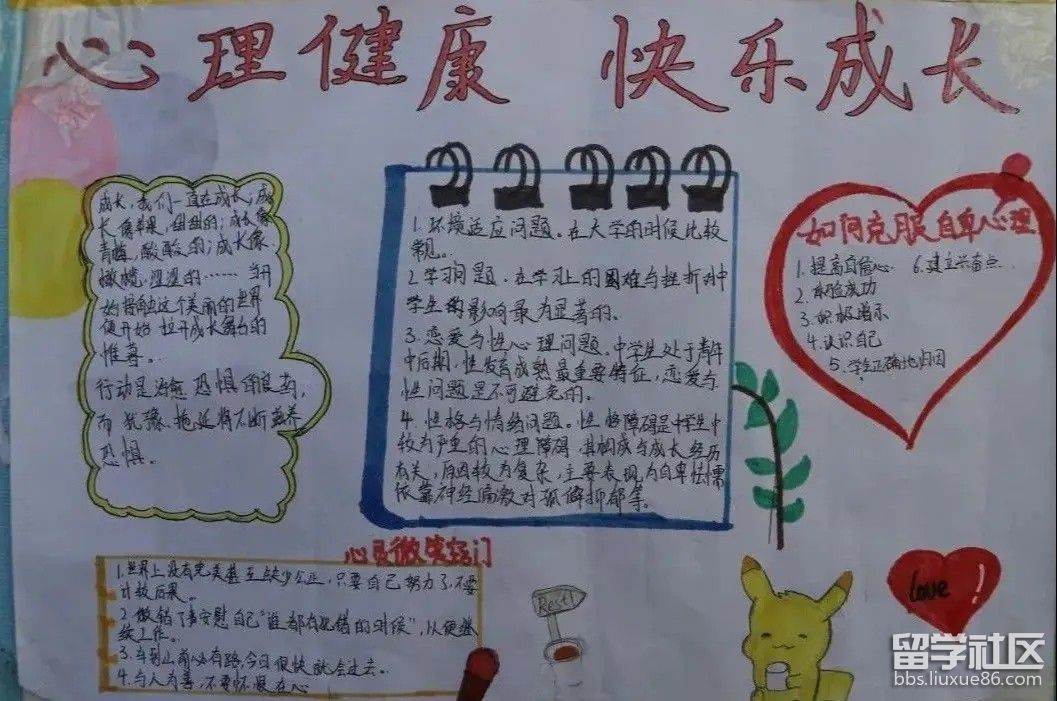 心理健康 快乐成长
成长，我们一直在成长；成
长像苹果，甜甜的；成长像
青梅，酸酸的；成长像
橄榄，涩涩的……
始接触这个美丽的世界
便开始 拉开成长舞台的
帷幕。
行动是治愈恐惧的良药，
而犹豫、拖延将不断滋养
恐惧。
1.环境适应问题。在大学的时候比较
常见。
2.学习问题。在学习上的困难与挫折对中
学生的影响最为显著的。
3.恋爱与性心理问题。中学生处于青年
中后期，性发育成熟最重要特征，恋爱与
性问题是不可避免的。
4.性格与情绪问题。性格障碍是中学生中
较为严重的心理障碍，其构成与成长经历
有关，原因较为复杂，主要表现为自卑怯懦
依赖神经质敌对孤僻抑郁等。
如何克服自卑心理
1.提高自信心 6.建立兴奋点
2.体验成功
3.积极暗示
4.认识自己
5.学生正确地归因
心灵微笑窍门
1.世界上没有完美甚至缺少公正，只要自己努力了，不要
计较后果。
2.做错了事安慰自己“谁都有犯错的时候”，以便继
续工作。
3.车到山前必有路，今日很快就会过去。
4.与人为善，不要怀恨在心
Reset
Love !
留学社区
bbs.liuxue86.com